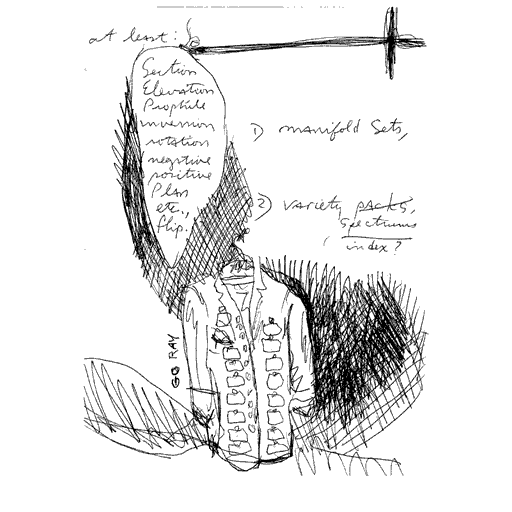 at least:
Section
Elevation
Prophile
inversion
rotation
negative
positive
Plan
etc.,
flip.
1) manifold Sets,
2) variety packs,
spectrums
index?
GO RAY